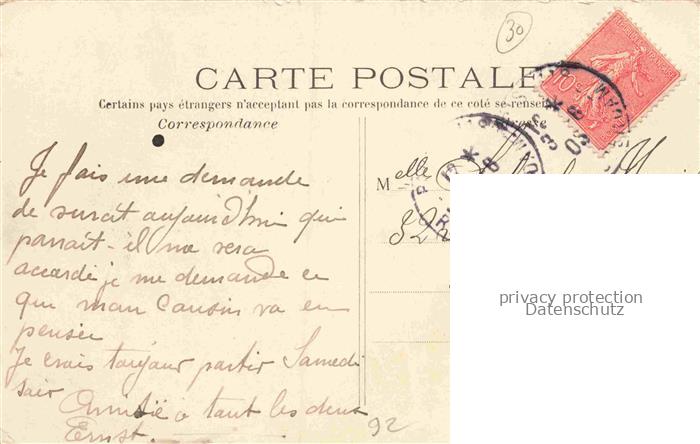 30
CARTE POSTALE
Certains pays étrangers n'acceptant pas la correspondance de ce coté se rensei
Correspondance
Adresse
Je fais une demande
de sursit aujourd'hui qui
parrait-il me sera
accordé je me demande ce
que mon Cousin va en
penser
Je crois toujour partir Samedi
soir
Amitié a tout les deux
Ernst.
Melle
32
92
privacy protection
Datenschutz